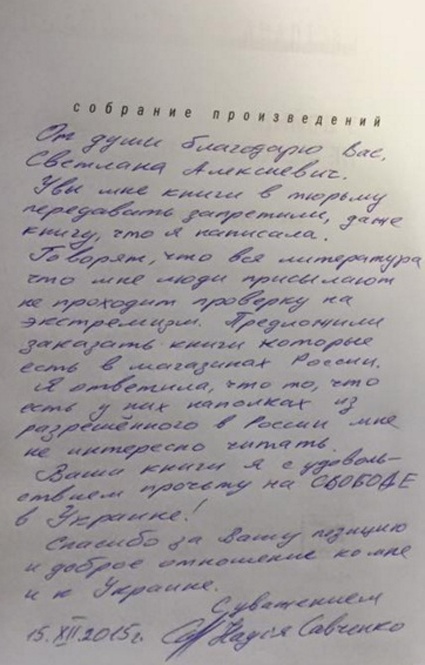 собрание произведений
От души благодарю Вас,
Светлана Алексиевич.
Увы мне книги в тюрьму
передавать запретили, даже
книгу, что я написала.
Говорят, что вся литература
что мне люди присылают
не проходит проверку на
экстремизм. Предложили
заказать книги которые
есть в магазинах России.
Я ответила, что то, что
есть у них наполках из
разрешённого в России мне
не интересно читать.
Ваши книги я с удоволь-
ствием прочьту на СВОБОДЕ
в Украине!
Спасибо за Вашу позицию
и доброе отношение ко мне
и к Украине.
С уважением
15.XII.2015г. Надія Савченко